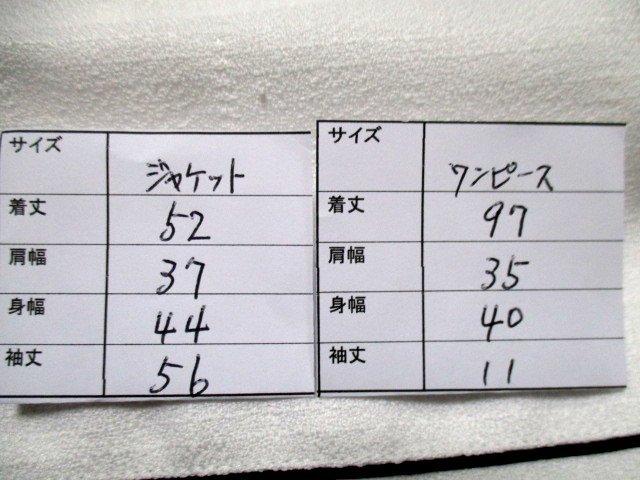 サイズ ジャケット
着丈 52
肩幅 37
身幅 44
袖丈 56
サイズ ワンピース
着丈 97
肩幅 35
身幅 40
袖丈 11